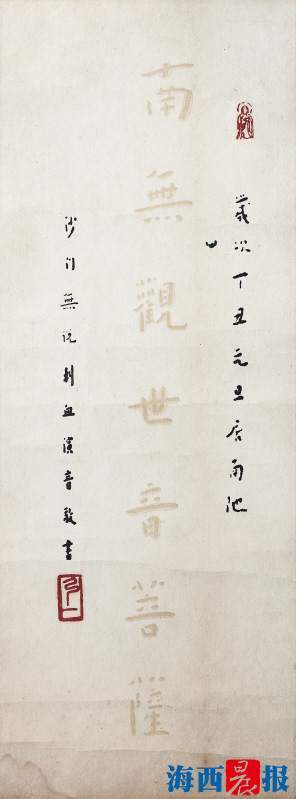 歲次丁丑元旦居南池
南無觀世音菩薩
沙門無說刺血演音敬書
海西晨报